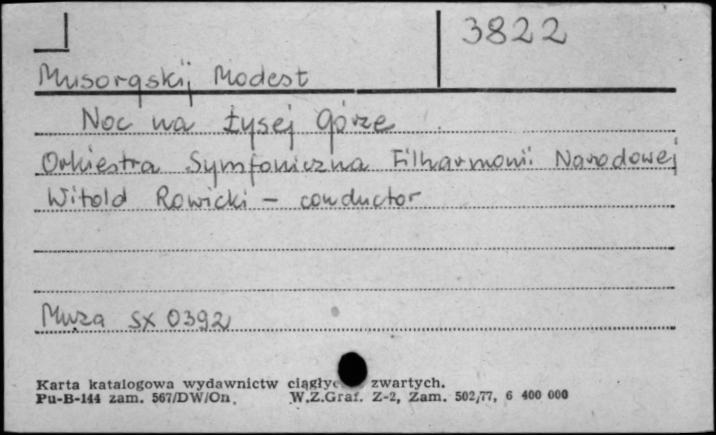 3822
Musorgskij Modest
Noc na Łysej Górze
Orkiestra Symfoniczna Filharmonii Narodowej
Witold Rowicki - conductor
Muza SX 0392
Karta katalogowa wydawnictw zwartych.
Pu-B-144 zam. 567/DW/On. W.Z.Graf. Z-2, Zam. 502/77, 6 400 000